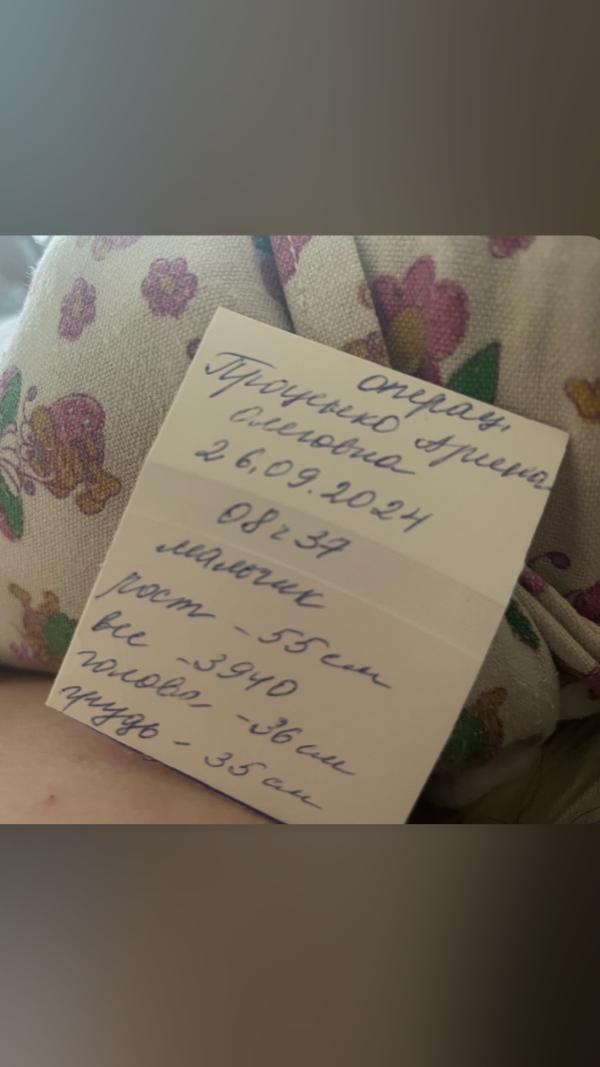 операц.
Процько Арина
Олеговна
26.09.2024
08 ч 37
мальчик
рост - 55 см
вес - 3940
голова - 36 см
грудь - 35 см